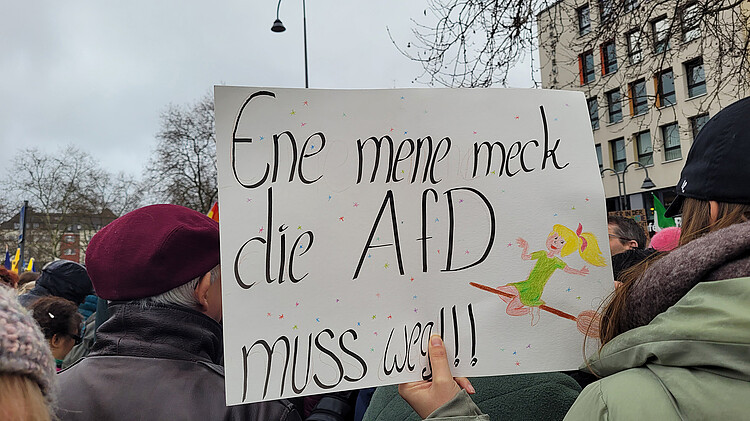 Ene mene meck
die AfD
muss weg!!!